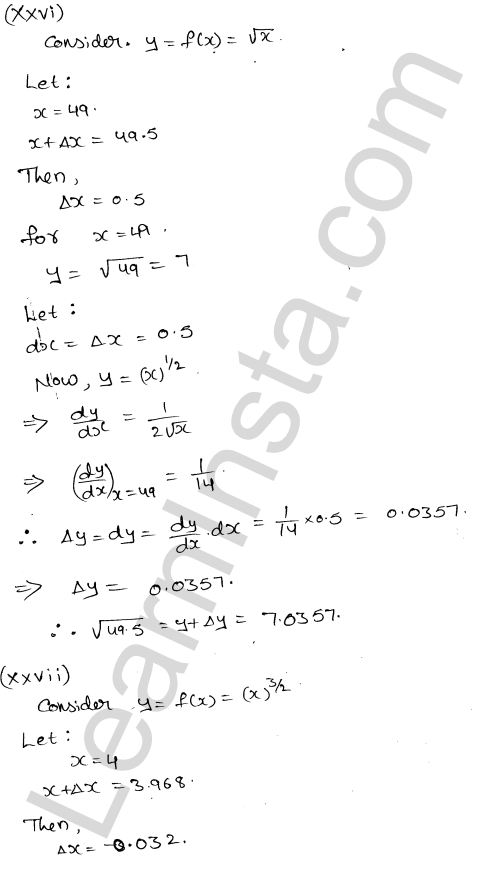 (xxvi)
Consider. y = f(x) = √x.
Let:
x = 49.
x+Δx = 49.5
Then,
Δx = 0.5
for x = 49.
y = √49 = 7
Let:
dx = Δx = 0.5
Now, y = (x)^1/2.
=> dy/dx = 1/2√x
=> (dy/dx)x=49 = 1/14.
∴ Δy = dy = dy/dx.dx = 1/14 × 0.5 = 0.0357.
=> Δy = 0.0357.
∴ √49.5 = y+Δy = 7.0357.
(xxvii)
Consider y = f(x) = (x)^3/2.
Let:
x = 4
x+Δx = 3.968.
Then,
Δx = -0.032.
LearnInsta.com